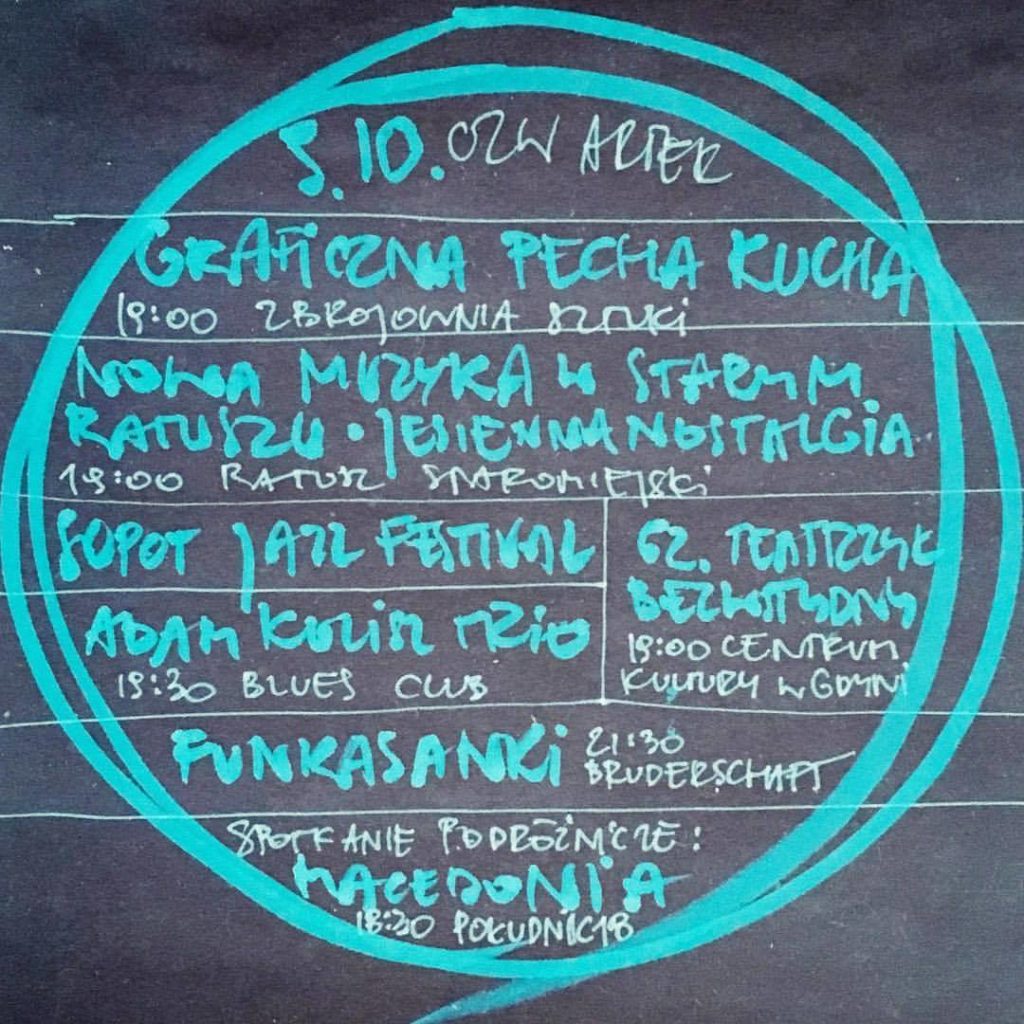 5.10. CZWARTEK
GRAFICZNA PECHA KUCHA
19:00 ZBROJOWNIA SZTUKI
NOWA MUZYKA W STARYM
RATUSZU • JESIENNA NOSTALGIA
19:00 RATUSZ STAROMIEJSKI
SOPOT JAZZ FESTIVAL
ADAM KULISZ TRIO
19:30 BLUES CLUB
62. TEATRZYK
BEZWSTYDNY
19:00 CENTRUM
KULTURY W GDYNI
FUNKASANKI 21:30
BRUDERSCHAFT
SPOTKANIE PODRÓŻNICZE:
MACEDONIA
18:30 POŁUDNIC18